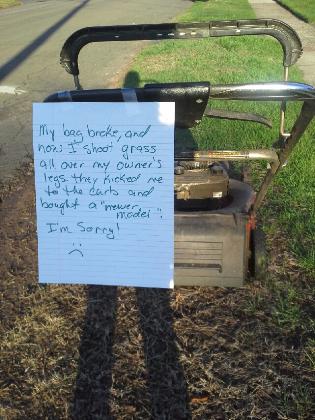 My bag broke, and
now I shoot grass
all over my owner's
legs. they kicked me
to the curb and
bought a "newer
model".
I'm Sorry!
:(